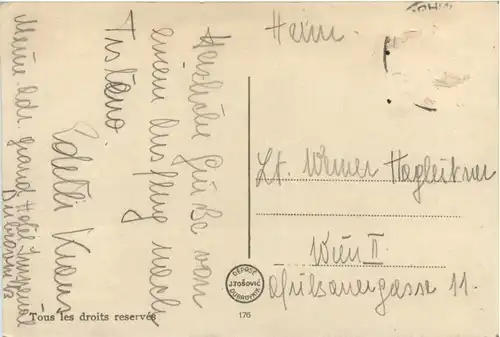 Herzliche Grüße von
einem Ausflug nach
Trsteno
Edetti Kraus
Meine Adr. Grand Hotel Imperial
Dubrovnik
Heim.
Lt. Werner Hagleitner
Wien II.
11.
DEPOSÉ
J.TOŠOVIĆ
DUBROVNIK
Tous les droits reservés
176